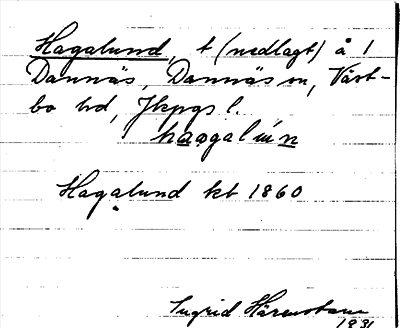 Hagalund, t (nedlagt) å 1
Dannäs, Dannäs sn, Väst-
bo hd, Jkpgs l.
haagalún
Hagalund kt 1860
Ingrid Härenstam
1931